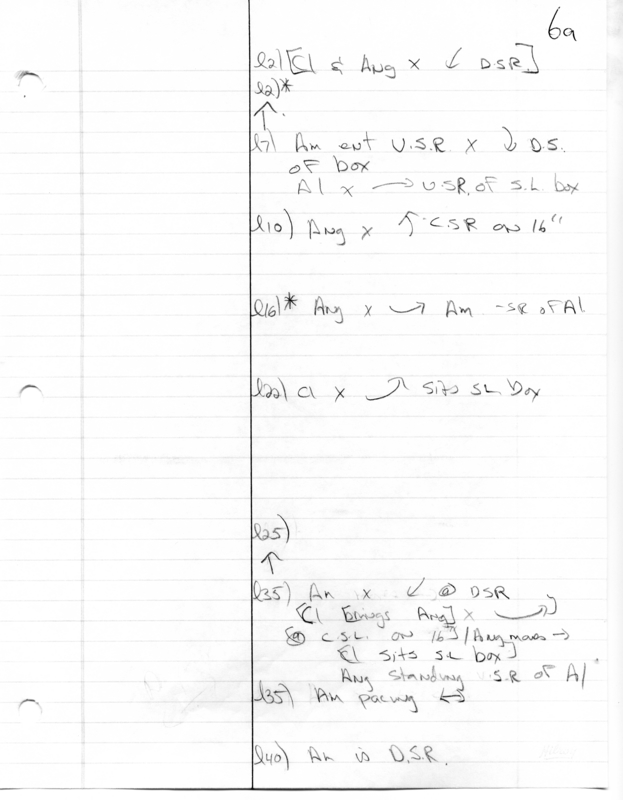 6a
l2) [Cl & Ang x ↙ DSR]
l2)*
↑
l7) Am ent U.S.R x ↓ D.S.
of box
Al x → U.SR. of S.L box
l10) Ang x ↑ C.S.R on 16"
l16)* Ang x → Am - SR of Al
l22) Cl x ↗ sits SL box
l25)
↑
l35) An x ↙ @ DSR
[Cl brings Ang] x →]
@ C.S.L. on 16"] / Ang moves →
[Cl sits SL box]
Ang standing S.R of Al
l35) Am pacing ↔
l40) An is D.S.R.